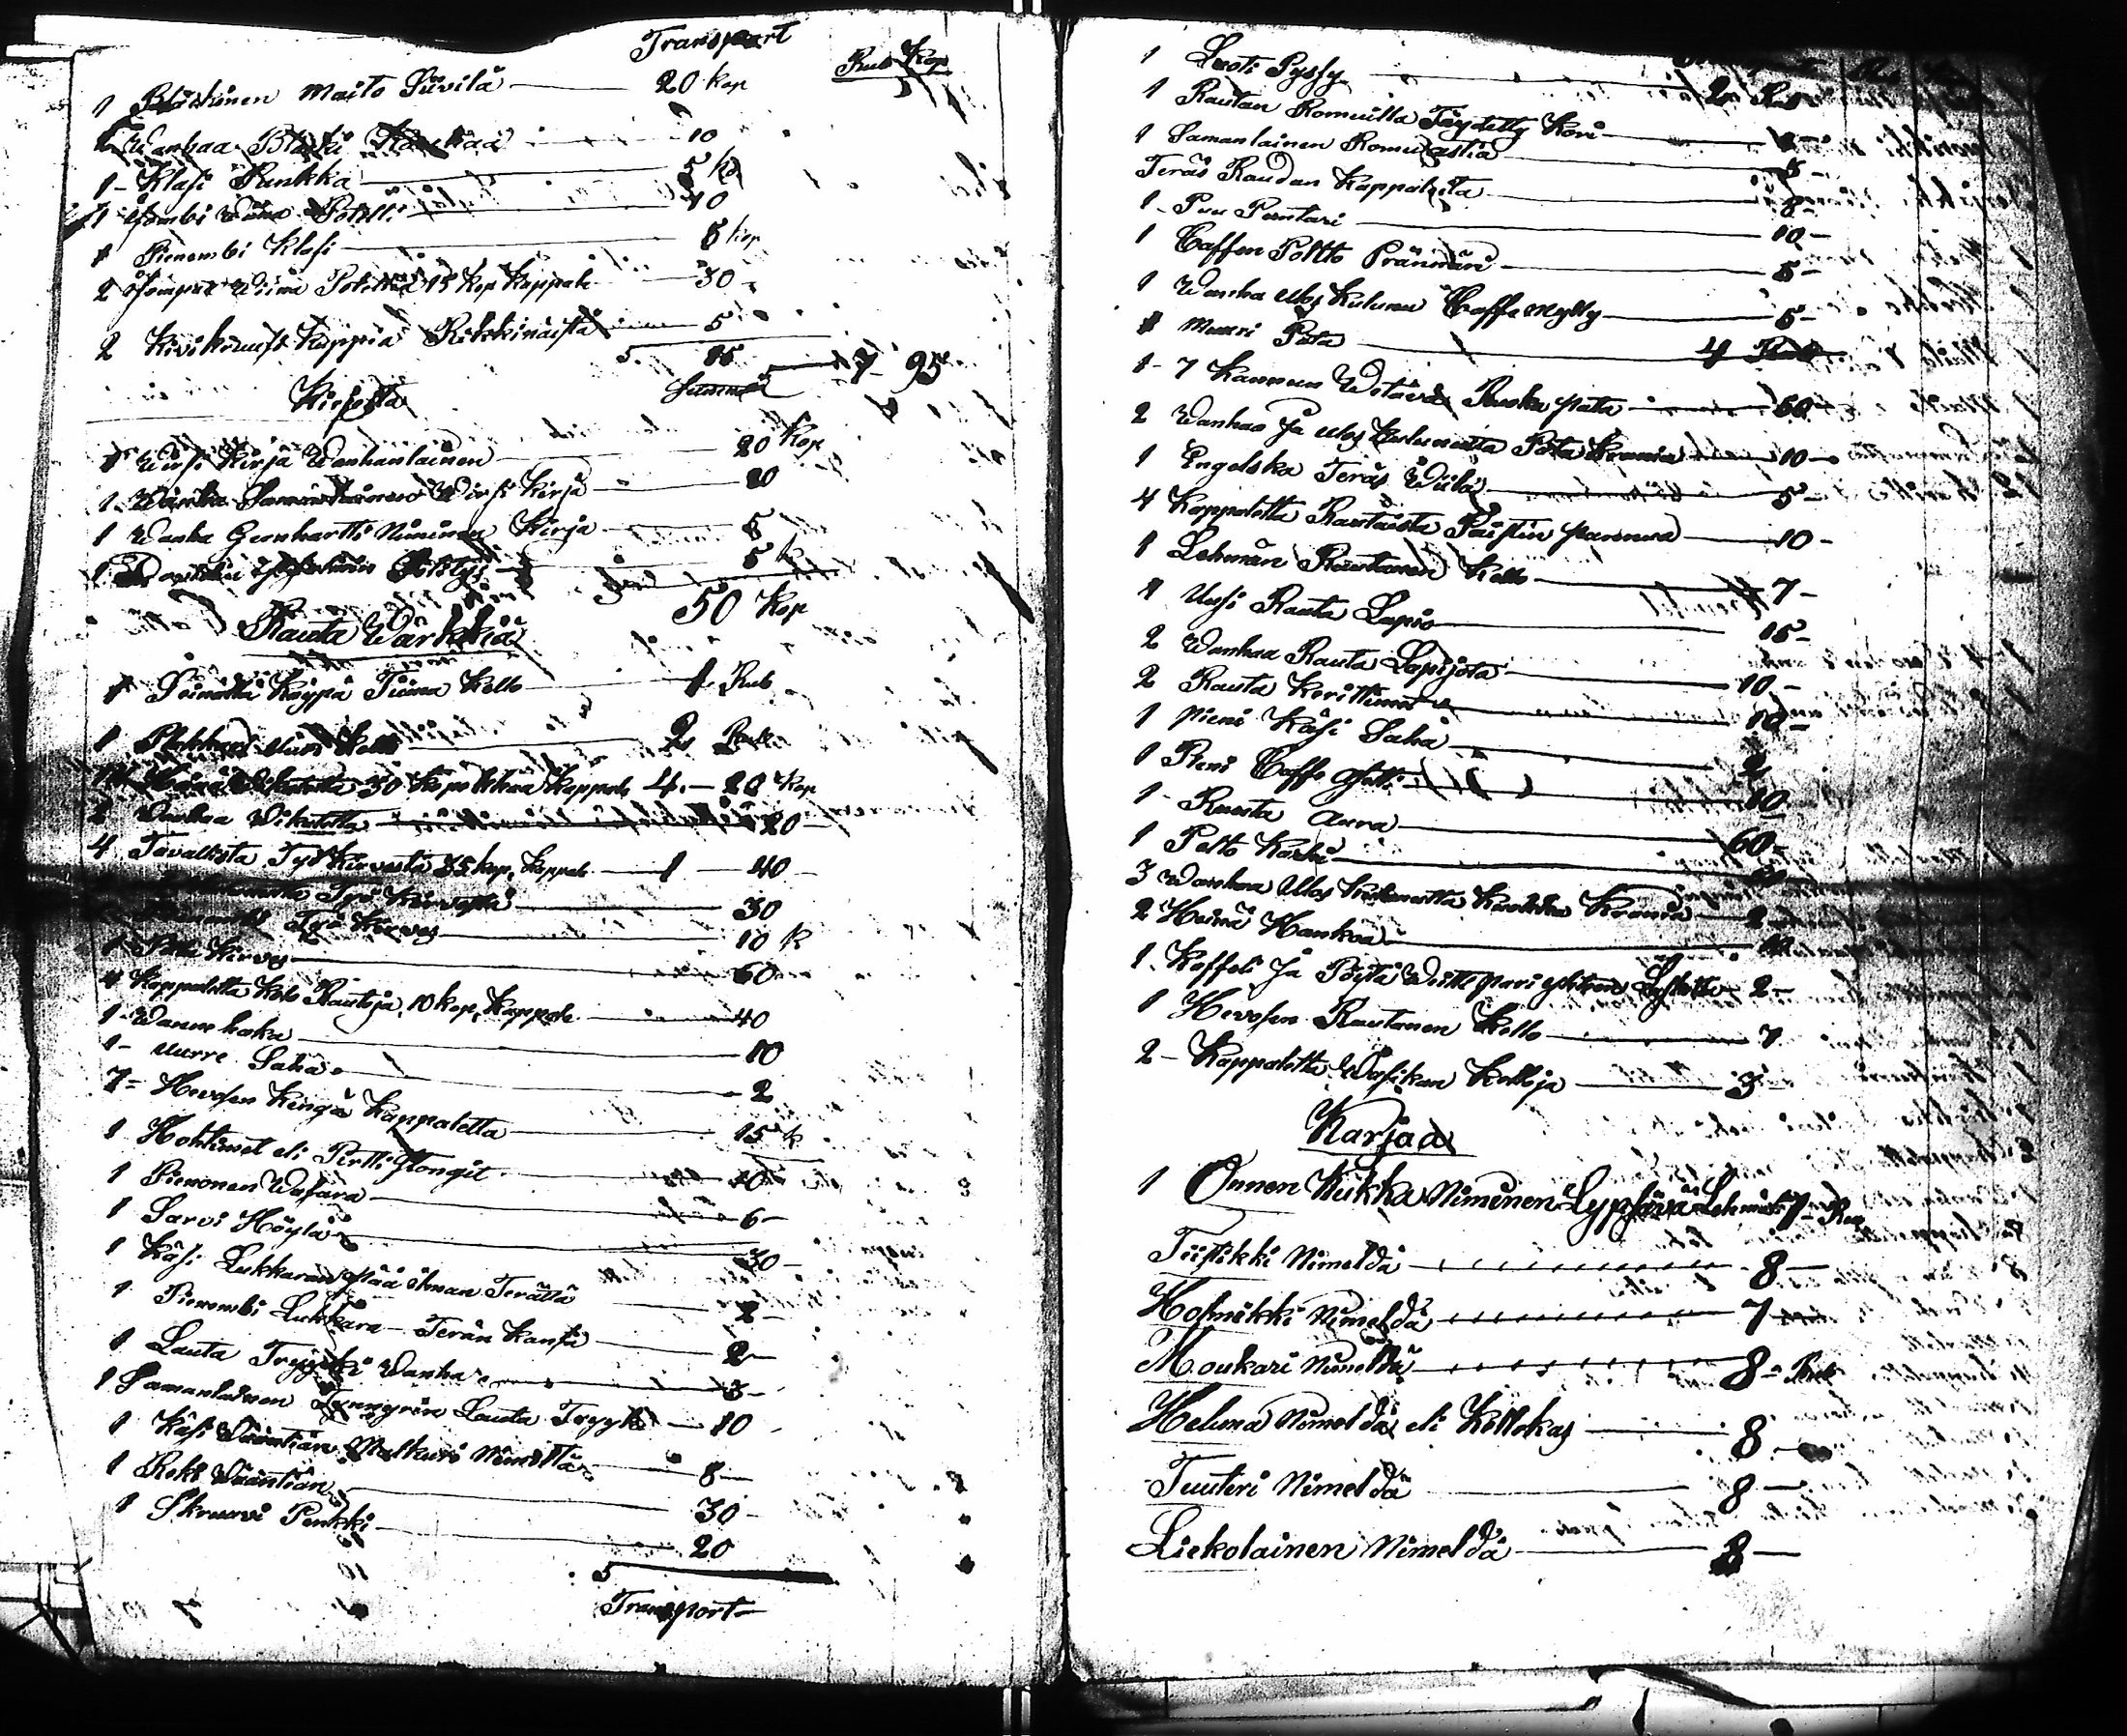 Transport
Rub Kop
1 Bläkkinen Maito Siivilä 20 kop
Wanhaa Bläkki 10
1 Klasi Runkka 5 ko
1 Isombi Wiina Potelli 10
1 Pienembi Klasi 5 kop
2 Isompaa Wiina Potellia 15 Kop Kappale 30
2 Kivikruusi Kuppia Rikkinäistä 5
5. 85 7 95
Summa
Kirjoista
1 Wirsi Kirja Wanhanlainen 20 Kop
1 Wanha Samanlainen Wirsi Kirja 20
1 Wanha Gernhartti Niminen Kirja 5
1 5 k
50 Kop
Rauta Wärkkiä
1 Seinällä Käypä Tiima Kello 1 Rub
1 Kello 2 Rub
30 Kopeikkaa Kappale 4 - 20 Kop
2 Wanhaa Wikatetta 20 -
4 Tavallista Työ Kirvestä 35 kop, Kappale 1 - 40 -
Työ Kirvestä 30
Työ Kirves 10 k
1 Kirves 60
4 Kappaletta Kolo Rautoja, 10 kop, Kappale 40
1 Wanne haka 10
1 - Uurre Saha 2
7 - Hevosen Kengä Kappaletta 15 k
1 Hohtimet eli Pirtti Tongit 20
1 Pienonen Wasara 6 -
1 Sarvi Höylä 30 -
1 Käsi Lukkaran Pää ilman Terättä 2 -
1 Pienembi Lukkara Terän Kansa 2 -
1 Lauta Tryyki Wanha 3 -
1 Samanlainen Lauta Tryyki 10
1 Käsi Wääntiän Matkuri Nimeltä 8 -
1 Reki Wääntiän 30 -
1 Skruuvi Penkki 20
5
Transport
1 Luoti Pyssy 2 Rub
1 Raudan Romuilla Täydetty Kori
1 Samanlainen Romu astia 5 -
Teräs Raudan Kappaleita 8 -
1 - Puu Puntari 10 -
1 Caffen Poltto Prännäri 5 -
1 Wanha Ulos Kulunu Caffe Mylly 5 -
1 Muuri Pata 4 Rub
1 - 7 Kannun Wetävä Ruoka pata 60
2 Wanhaa Ja Ulos Kulunutta Pata Kraania 10 -
1 Engelska Teräs Wiila 5 -
4 Kappaletta Rautaista Paistin pannua 10 -
1 Lehmän Rautanen Kello 7 -
1 Uusi Rauta Lapio 15 -
2 Wanhaa Rauta Lapijota 10 -
2 Rauta Kerittimet 10 -
1 Pieni Käsi Saha 2
1 Pieni Caffe 10
1 - Rauta Aura 60 -
1 Pelto Karhi
3 Wanhaa Ulos Kulunutta Kraania 2 -
2 Heinä Hankoa
1 Kaffeli Ja Pöytä Weitti pari yhteen 2 -
1 Hevosen Rautanen Kello 7
2 - Kappaletta Wasikan Kelloja 3 -
Karjaa
1 Onnen Kukka Niminen Lypsävä Lehmä
Tiistikki Nimeldä 8 -
Holmikki Nimeldä 7
Moukari Nimeldä 8 - Rub
Heluna Nimeldä eli Kellokas 8 -
Tuuteri Nimeldä 8 -
Liekolainen Nimeldä 8 -